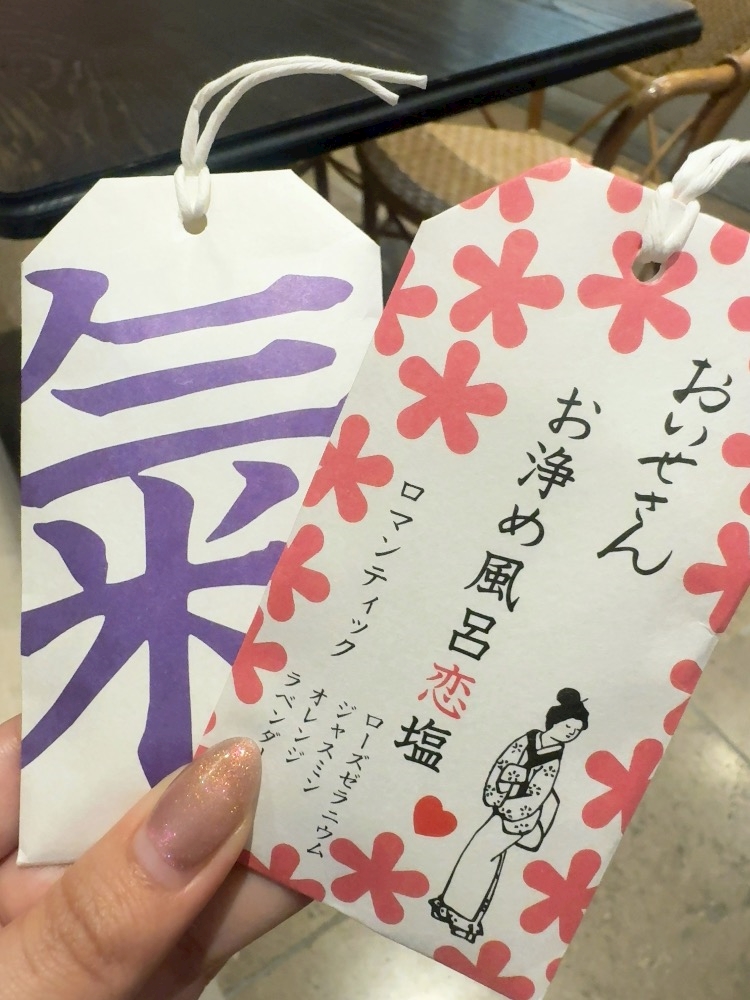 氣
おいせさん
お浄め風呂恋塩
ロマンティック
ローズゼラニウム
ジャスミン
オレンジ
ラベンダー